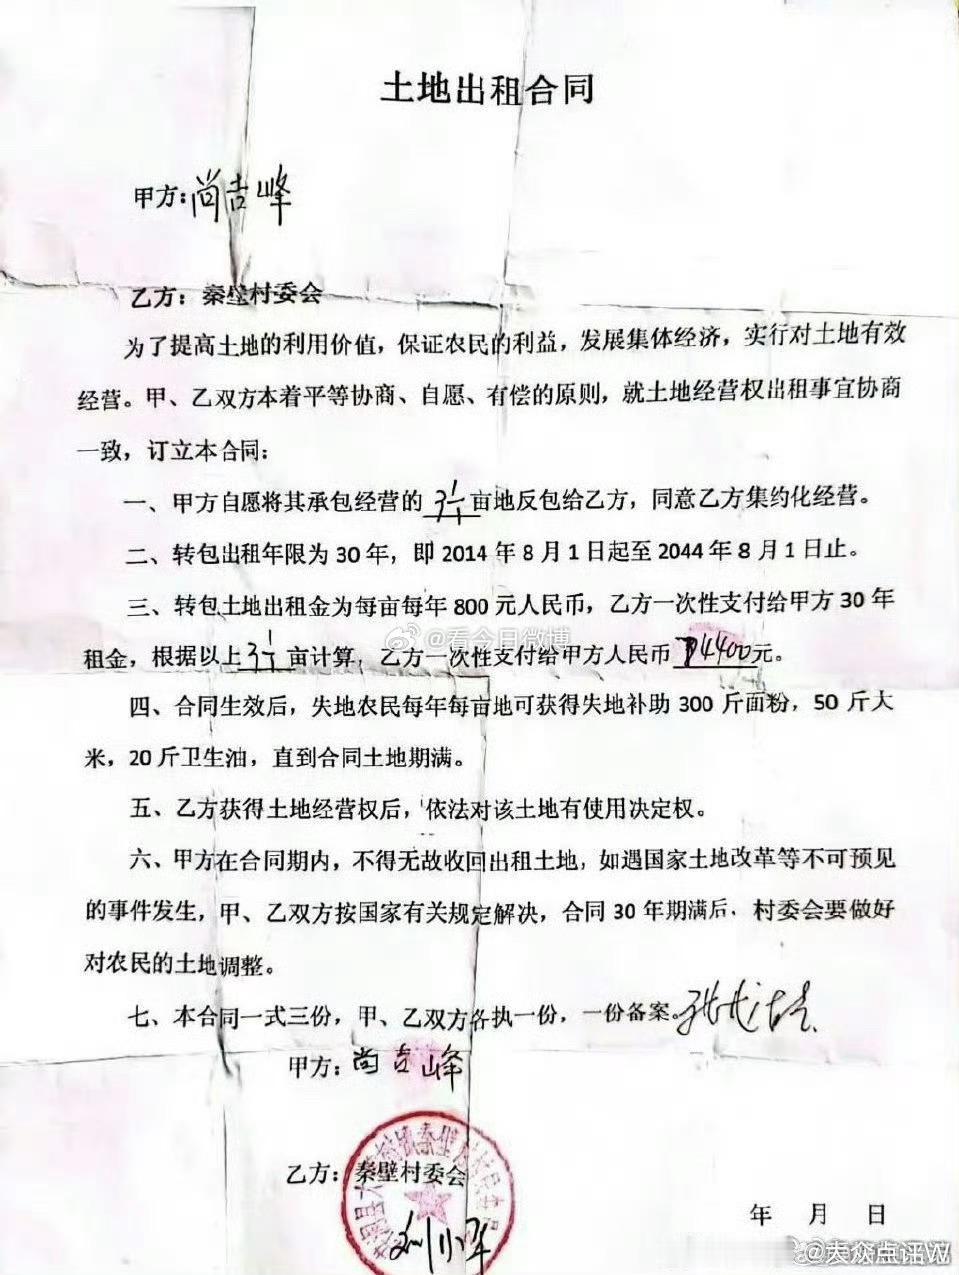 土地出租合同
甲方:尚吉峰
乙方：秦壁村委会
为了提高土地的利用价值，保证农民的利益，发展集体经济，实行对土地有效
经营。甲、乙双方本着平等协商、自愿、有偿的原则，就土地经营权出租事宜协商
一致，订立本合同：
一、甲方自愿将其承包经营的 亩地反包给乙方，同意乙方集约化经营。
二、转包出租年限为30年，即2014年8月1日起至2044年8月1日止。
三、转包土地出租金为每亩每年800元人民币，乙方一次性支付给甲方30年
@看今日微博
租金，根据以上 亩计算，乙方一次性支付给甲方人民币 元。
四、合同生效后，失地农民每年每亩地可获得失地补助300斤面粉，50斤大
米，20斤卫生油，直到合同土地期满。
五、乙方获得土地经营权后，依法对该土地有使用决定权。
六、甲方在合同期内，不得无故收回出租土地，如遇国家土地改革等不可预见
的事件发生，甲、乙双方按国家有关规定解决，合同30年期满后，村委会要做好
对农民的土地调整。
七、本合同一式三份，甲、乙双方各执一份，一份备案。
甲方：尚吉峰
乙方：秦壁村委会
年 月 日
@大众点评W